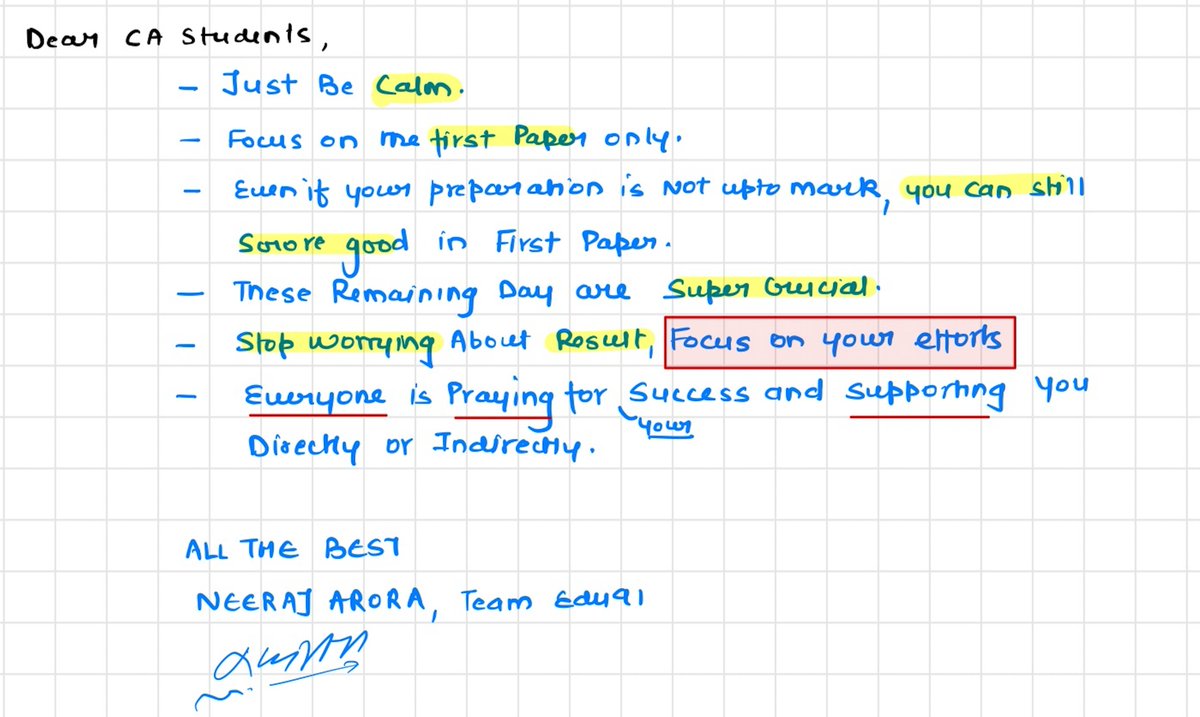 Dear CA Students,
- Just Be Calm.
- Focus on the first Paper only.
- Even if your preparation is Not upto mark, you can still
Score good in First Paper.
- These Remaining Day are Super Crucial.
- Stop worrying About Result, Focus on your efforts
- Everyone is Praying for your Success and Supporting you
Directly or Indirectly.
ALL THE BEST
NEERAJ ARORA, Team Edu91